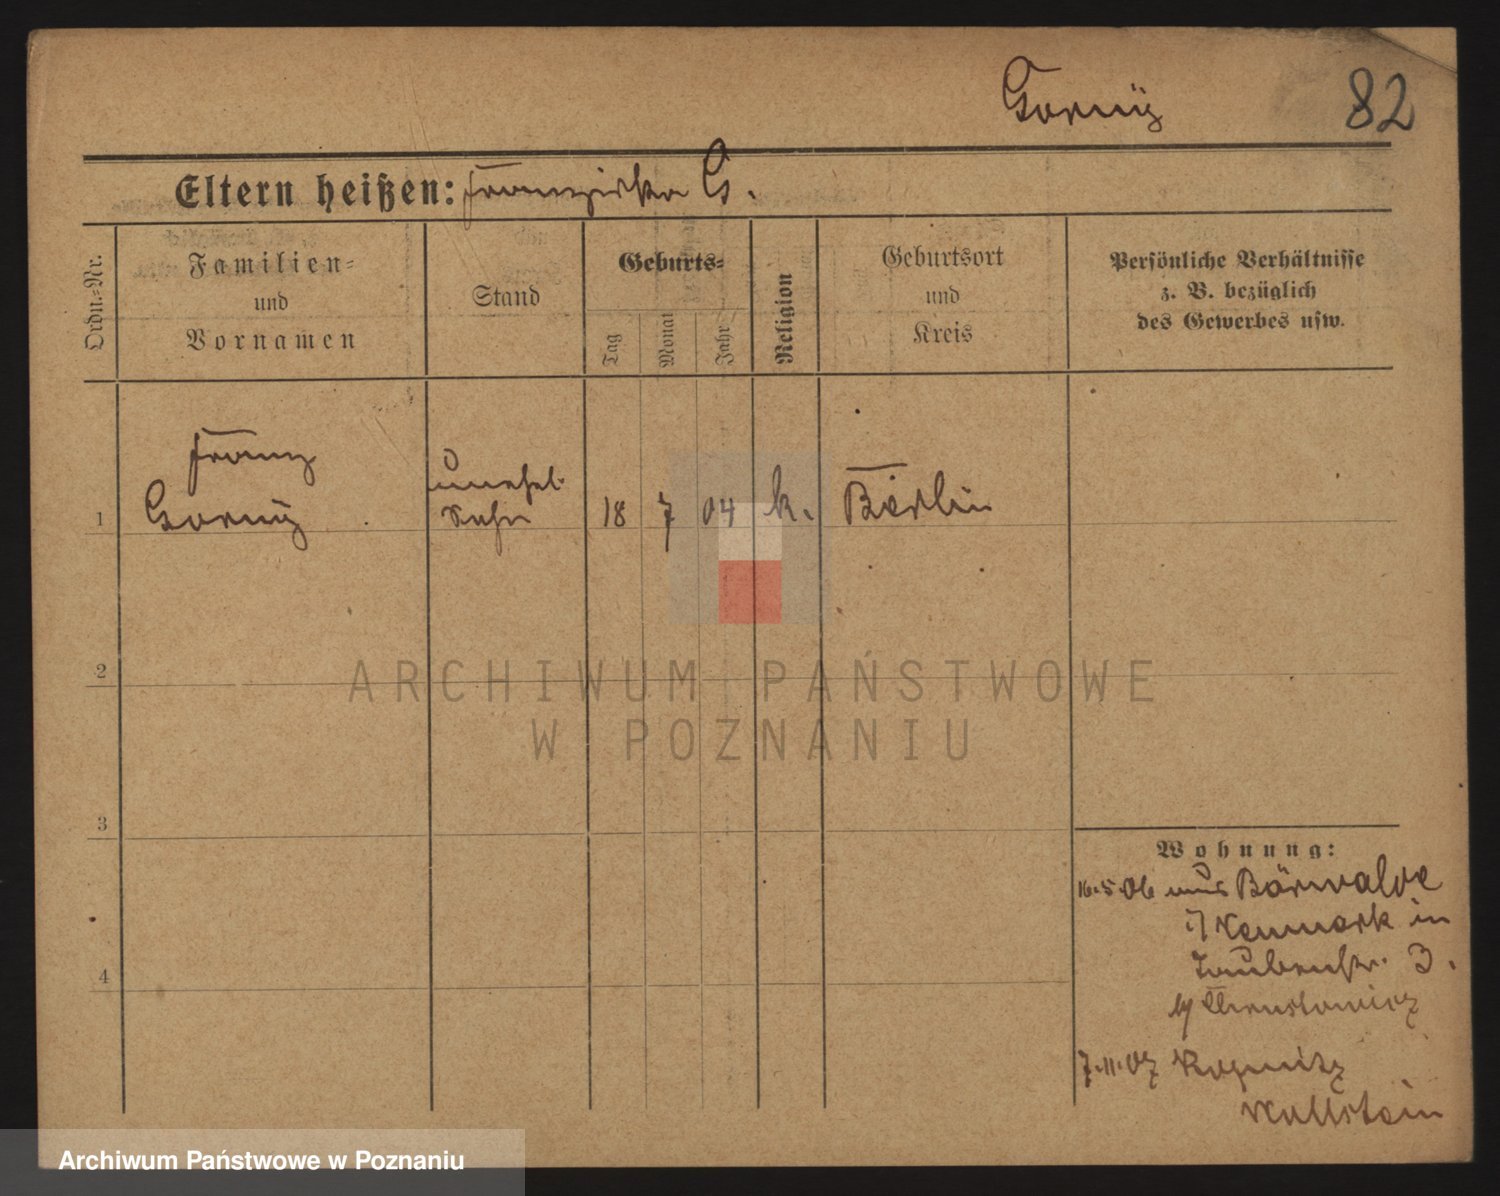 Gorny
82
Eltern heißen: Franziska G.
Ordn.-Nr.
Familien-
und
Vornamen
Stand
Geburts-
Tag
Monat
Jahr
Religion
Geburtsort
und
Kreis
Persönliche Verhältnisse
z. B. bezüglich
des Gewerbes usw.
Franz
unehel.
1 Gorny Sohn 18 7 04 k. Berlin
2
ARCHIWUM PAŃSTWOWE
W POZNANIU
3
Wohnung:
16.5.06 aus Bärwalde
Neumark in
Taubenstr. 3.
b/ Chrustowicz
4
7.11.07 Wollstein
Archiwum Państwowe w Poznaniu